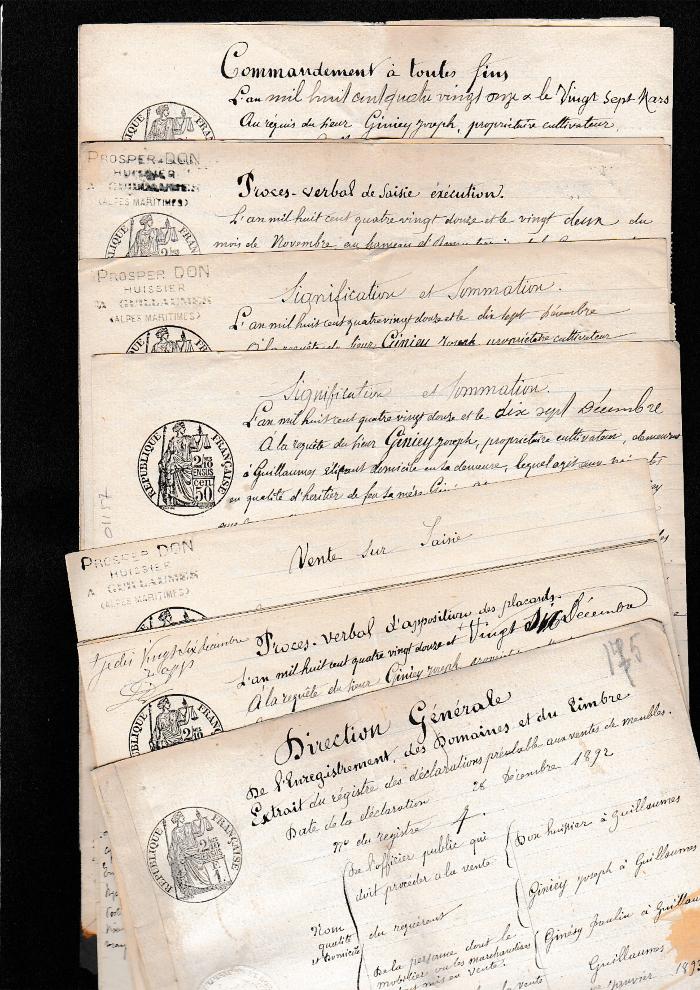 Commandement à toutes fins
L'an mil huit cent quatre vingt onze & le Vingt Sept Mars
Au réquis du sieur Giniey Joseph, propriétaire cultivateur,
PROSPER DON
HUISSIER
A GUILLAUMES
(ALPES MARITIMES)
Procès-verbal de Saisie exécution.
L'an mil huit cent quatre vingt douze et le vingt deux du
mois de Novembre au hameau
PROSPER DON
HUISSIER
A GUILLAUMES
(ALPES MARITIMES)
Signification et Sommation.
L'an mil huit cent quatre vingt douze et le dix sept Décembre
A la requête du sieur Giniey Joseph propriétaire cultivateur
Signification et Sommation.
L'an mil huit cent quatre vingt douze et le dix sept Décembre
A la requête du sieur Giniey Joseph, propriétaire cultivateur, demeurant
à Guillaumes élisant domicile en sa demeure, lequel agit aux
en qualité d'héritier de feu sa mère
RÉPUBLIQUE FRANÇAISE
cen
50
PROSPER DON
HUISSIER
A GUILLAUMES
(ALPES MARITIMES)
Vente sur Saisie
Procès-verbal d'apposition des placards.
L'an mil huit cent quatre vingt douze et Vingt Six Décembre
A la requête du sieur Giniey Joseph
175
Direction Générale
De l'Enregistrement, des Domaines et du Timbre
Extrait du régistre des déclarations préalable aux ventes de meubles.
Date de la déclaration 28 Décembre 1892
No du registre 4.
RÉPUBLIQUE FRANÇAISE
De l'officier public qui
doit procéder a la vente
Don huissier à Guillaumes
Nom
qualité
et domicile
du requérant
Giniey Joseph à Guillaumes
De la personne dont le
mobilier ou les marchandises
sont mis en vente.
Giniey Paulin à Guillaumes
la vente
Guillaumes